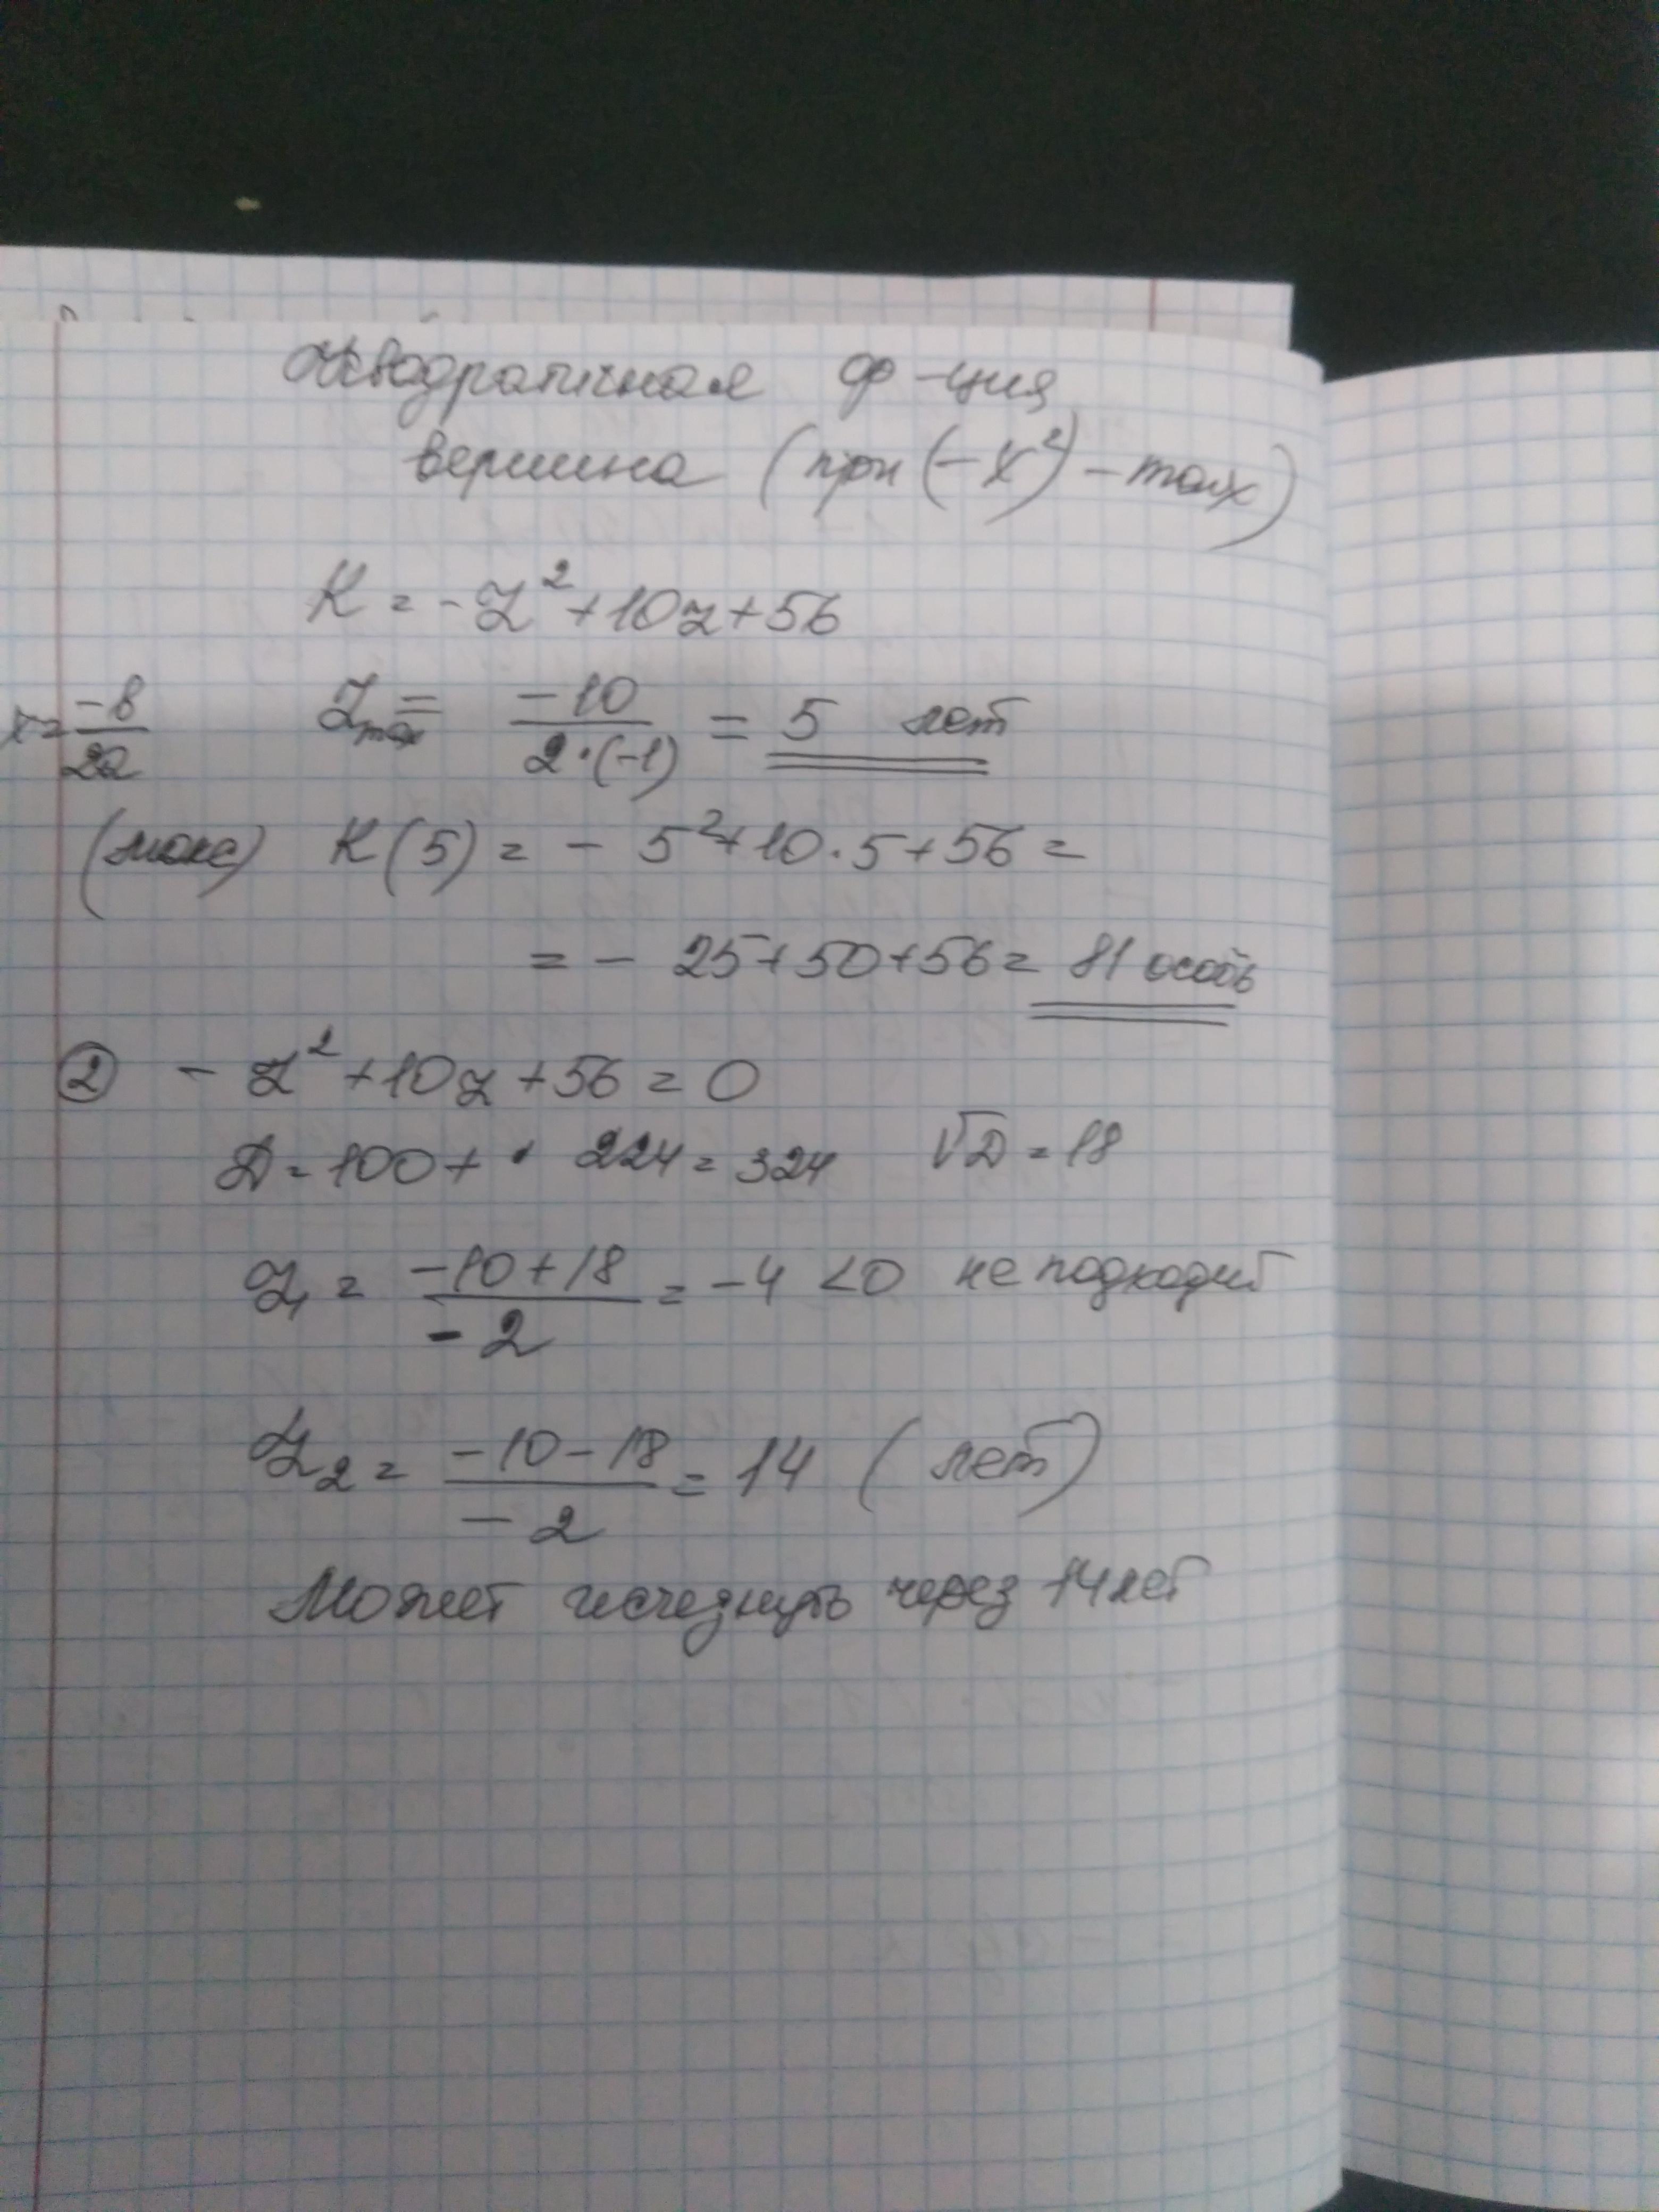 Квадратичная ф-ция
вершина (при (-x²) - max)
K = -z² + 10z + 56
x = -b/2a
z max = -10/(2·(-1)) = 5 лет
(макс) K(5) = - 5² + 10·5 + 56 =
= - 25 + 50 + 56 = 81 особь
② - z² + 10z + 56 = 0
D = 100 + · 224 = 324 √D = 18
z₁ = (-10 + 18)/(-2) = -4 < 0 не подходит
z₂ = (-10 - 18)/(-2) = 14 (лет)
Может исчезнуть через 14 лет